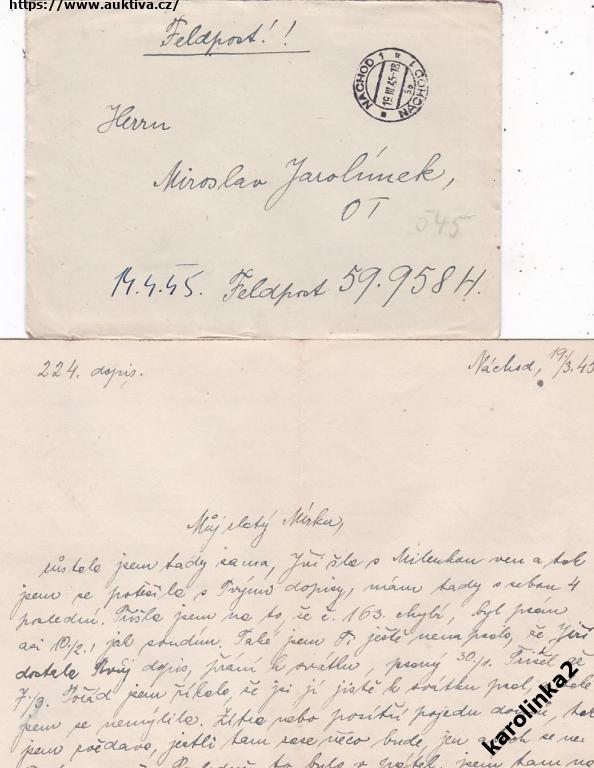 https://www.auktiva.cz/
Feldpost!!
NÁCHOD 1
19.III.45-18
5b
NÁCHOD 1
Herrn
Miroslav Jarolímek,
OT
545
14.4.45. Feldpost 59.958 H.
224. dopis.
Náchod, 19/3.45
Můj zlatý Mirku,
zůstala jsem tady sama, Jiří šla s Milenkou ven a tak
jsem se potěšila s Tvými dopisy, mám tady s sebou 4
poslední. Přišla jsem na to, že č. 163 chybí, byl psam
asi 10/2., jak soudím. Také jsem Ti ještě nenapsala, že Jiří
dostala Tvůj dopis, přání k svátku psaný 30/1. Přišel až
7/3. Pořád jsem říkala, že jsi jí jistě k svátku psal,
jsem se nemýlila. Zítra nebo pozítří pojedu
jsem zvědava, jestli tam zase něco bude, jen
to bylo v pátek, jsem tam
karolinka2